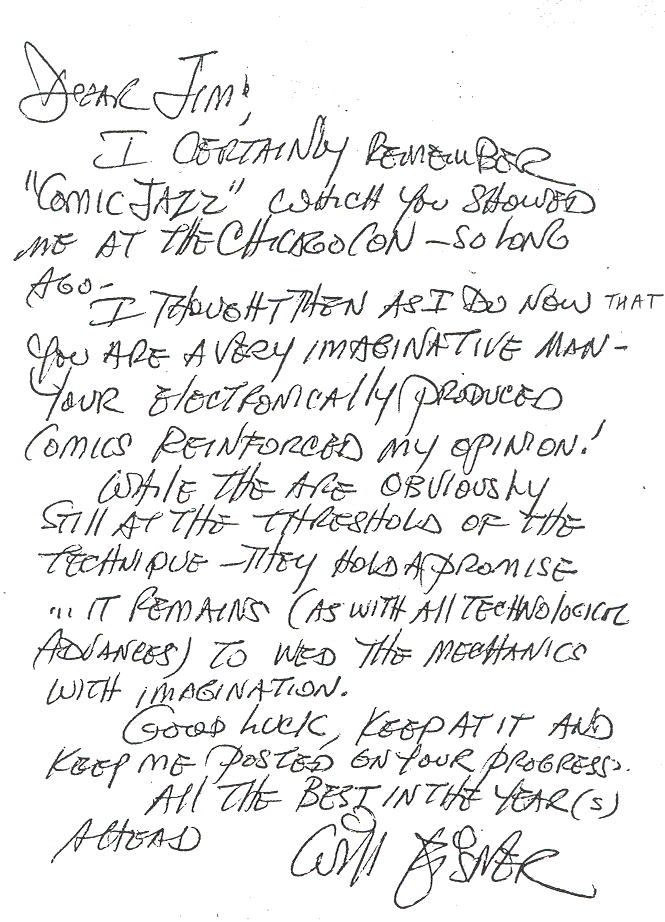 DEAR JIM;
I CERTAINLY REMEMBER
"COMIC JAZZ" WHICH YOU SHOWED
ME AT THE CHICAGO CON – SO LONG
AGO-
I THOUGHT THEN AS I DO NOW THAT
YOU ARE A VERY IMAGINATIVE MAN –
YOUR ELECTRONICALLY PRODUCED
COMICS REINFORCED MY OPINION!
WHILE THE ARE OBVIOUSLY
STILL AT THE THRESHOLD OF THE
TECHNIQUE – THEY HOLD A PROMISE
... IT REMAINS (AS WITH ALL TECHNOLOGICAL
ADVANCES) TO WED THE MECHANICS
WITH IMAGINATION.
GOOD LUCK, KEEP AT IT AND
KEEP ME POSTED ON YOUR PROGRESS.
ALL THE BEST IN THE YEAR(S)
AHEAD
WILL EISNER